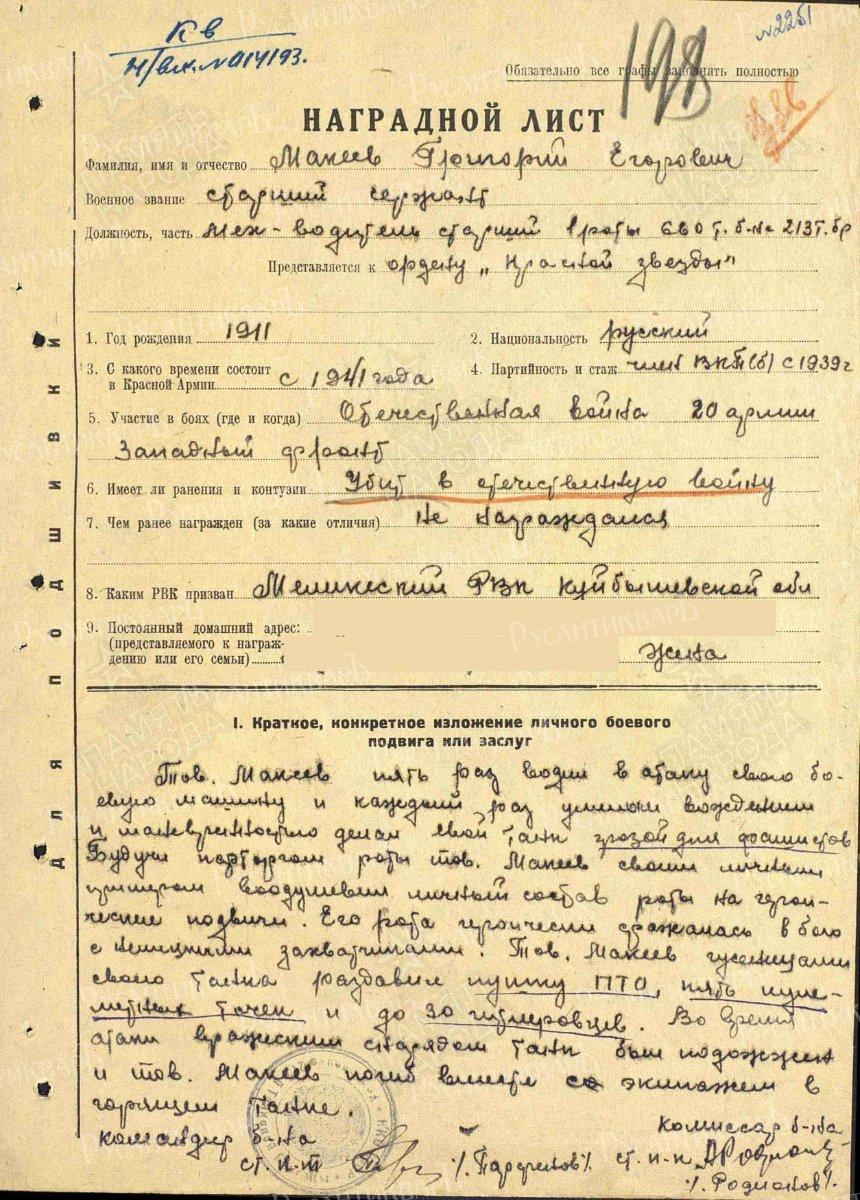 Кв
№2251
Н/вх.№014193.
198
Обязательно все графы заполнять полностью
НАГРАДНОЙ ЛИСТ
Фамилия, имя и отчество Макеев Григорий Егорович
Военное звание старший сержант
Должность, часть Мех-водитель старший роты т. б-на 213 т. бр
Представляется к ордену „Красной звезды"
1. Год рождения 1911
2. Национальность русский
3. С какого времени состоит в Красной Армии с 1941 года
4. Партийность и стаж член ВКП(б) с 1939г
5. Участие в боях (где и когда) Отечественная война 20 армии
Западный фронт
6. Имеет ли ранения и контузии Убит в отечественную войну
7. Чем ранее награжден (за какие отличия) Не награждался
8. Каким РВК призван Меликеский РВК Куйбышевской обл
9. Постоянный домашний адрес:
(представляемого к награж-
дению или его семьи) жена
РУСАНТИКВАРЪ
Для подшивки
I. Краткое, конкретное изложение личного боевого
подвига или заслуг
Тов. Макеев пять раз водил в атаку свою бо-
евую машину и каждый раз умелым вождением
и маневренностью делал свой танк грозой для фашистов
Будучи парторгом роты тов. Макеев своим личным
примером воодушевил личный состав роты на герои-
ческие подвиги. Его рота героически сражалась в бою
с немецкими захватчиками. Тов. Макеев гусеницами
своего танка раздавил пушку ПТО, пять пуле-
метных точек и до 30 гитлеровцев. Во время
атаки вражеским снарядом танк был подожжен
и тов. Макеев погиб вместе со экипажем в
горящем танке.
командир б-на
комиссар б-на
ст. л-т
ст. п-к
/Родионов/.